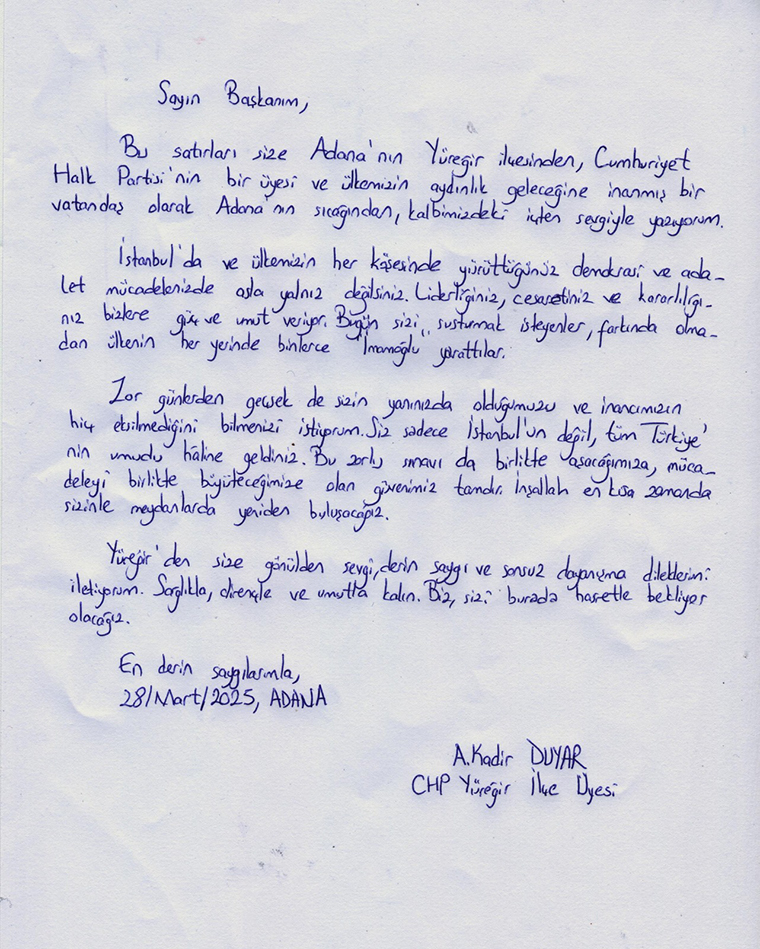 Sayın Başkanım,
Bu satırları size Adana'nın Yüreğir ilçesinden, Cumhuriyet
Halk Partisi'nin bir üyesi ve ülkemizin aydınlık geleceğine inanmış bir
vatandaş olarak Adana'nın sıcağından, kalbimizdeki içten sevgiyle yazıyorum.
İstanbul'da ve ülkemizin her köşesinde yürüttüğünüz demokrasi ve ada-
let mücadelenizde asla yalnız değilsiniz. Liderliğiniz, cesaretiniz ve kararlılığı-
nız bizlere güç ve umut veriyor. Bugün sizi susturmak isteyenler, farkında olma-
dan ülkenin her yerinde binlerce İmamoğlu yarattılar.
Zor günlerden geçsek de sizin yanınızda olduğumuzu ve inancımızın
hiç eksilmediğini bilmenizi istiyorum. Siz sadece İstanbul'un değil, tüm Türkiye'
nin umudu hâline geldiniz. Bu zorlu sınavı da birlikte aşacağımıza, müca-
deleyi birlikte büyüteceğimize olan güvenimiz tamdır. İnşallah en kısa zamanda
sizinle meydanlarda yeniden buluşacağız.
Yüreğir'den size gönülden sevgi, derin saygı ve sonsuz dayanışma dileklerimi
iletiyorum. Sağlıkla, dirençle ve umutla kalın. Biz, sizi burada hasretle bekliyor
olacağız.
En derin saygılarımla,
28/Mart/2025, ADANA
A.Kadir DUYAR
CHP Yüreğir İlçe Üyesi